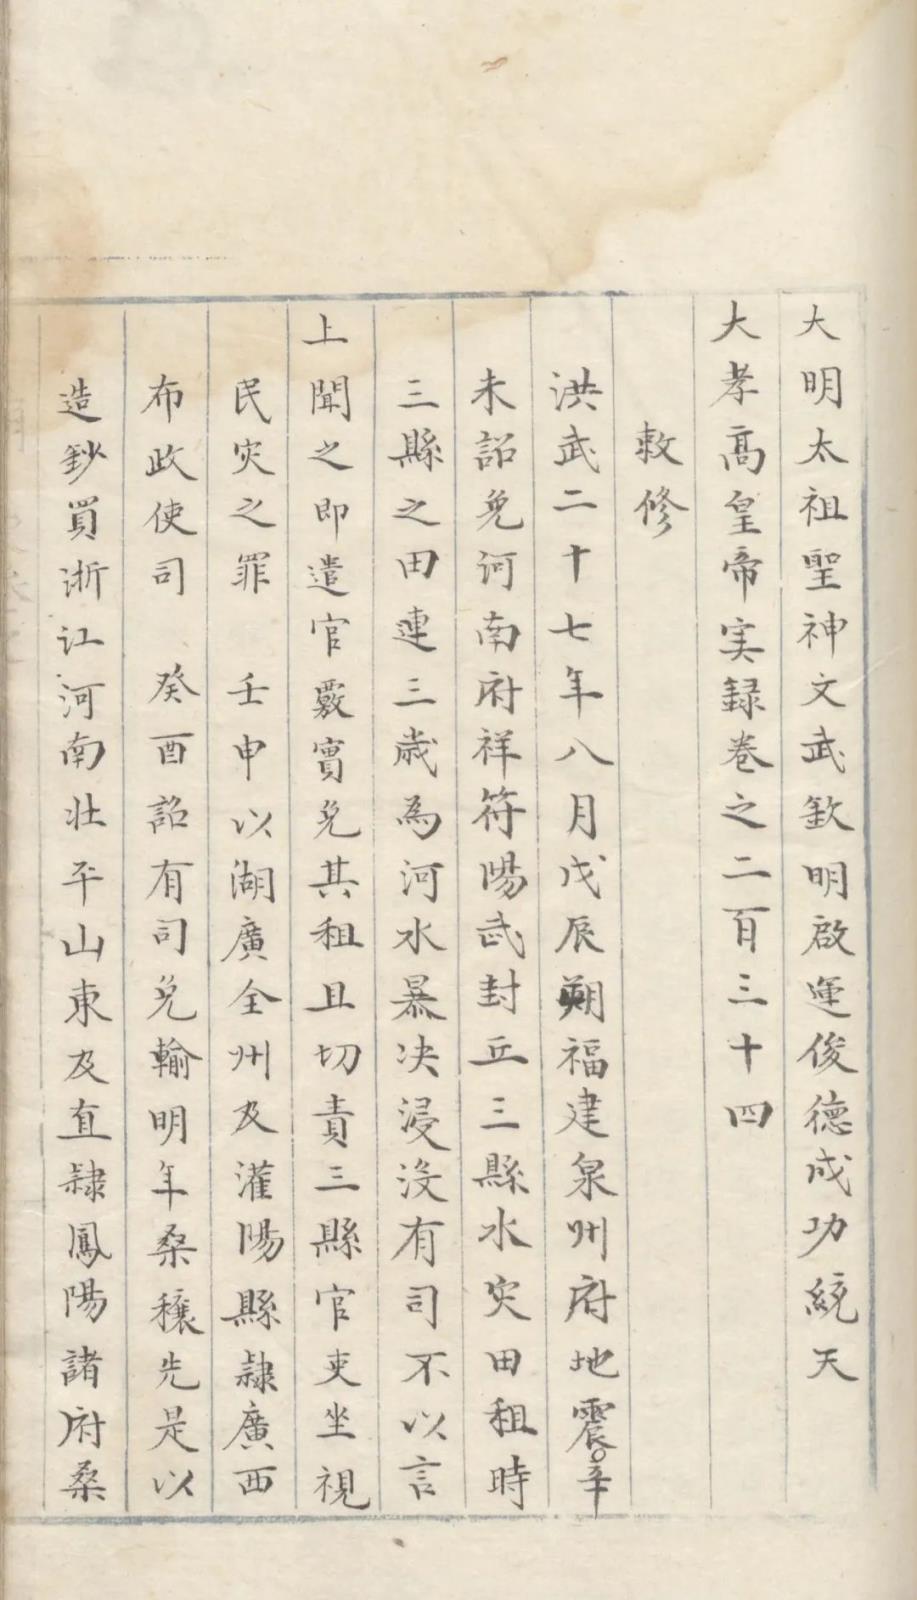 大明太祖聖神文武欽明啟運俊德成功統天
大孝高皇帝実録卷之二百三十四
敕修
洪武二十七年八月戊辰朔福建泉州府地震○辛
未詔免河南府祥符陽武封丘三縣水灾田租時
三縣之田連三歲為河水暴决浸沒有司不以言
上聞之即遣官覈實免其租且切責三縣官吏坐視
民灾之罪 壬申以湖廣全州及灌陽縣隷廣西
布政使司 癸酉詔有司免輸明年桑穰先是以
造鈔買浙江河南壮平山東及直隷鳳陽諸府桑